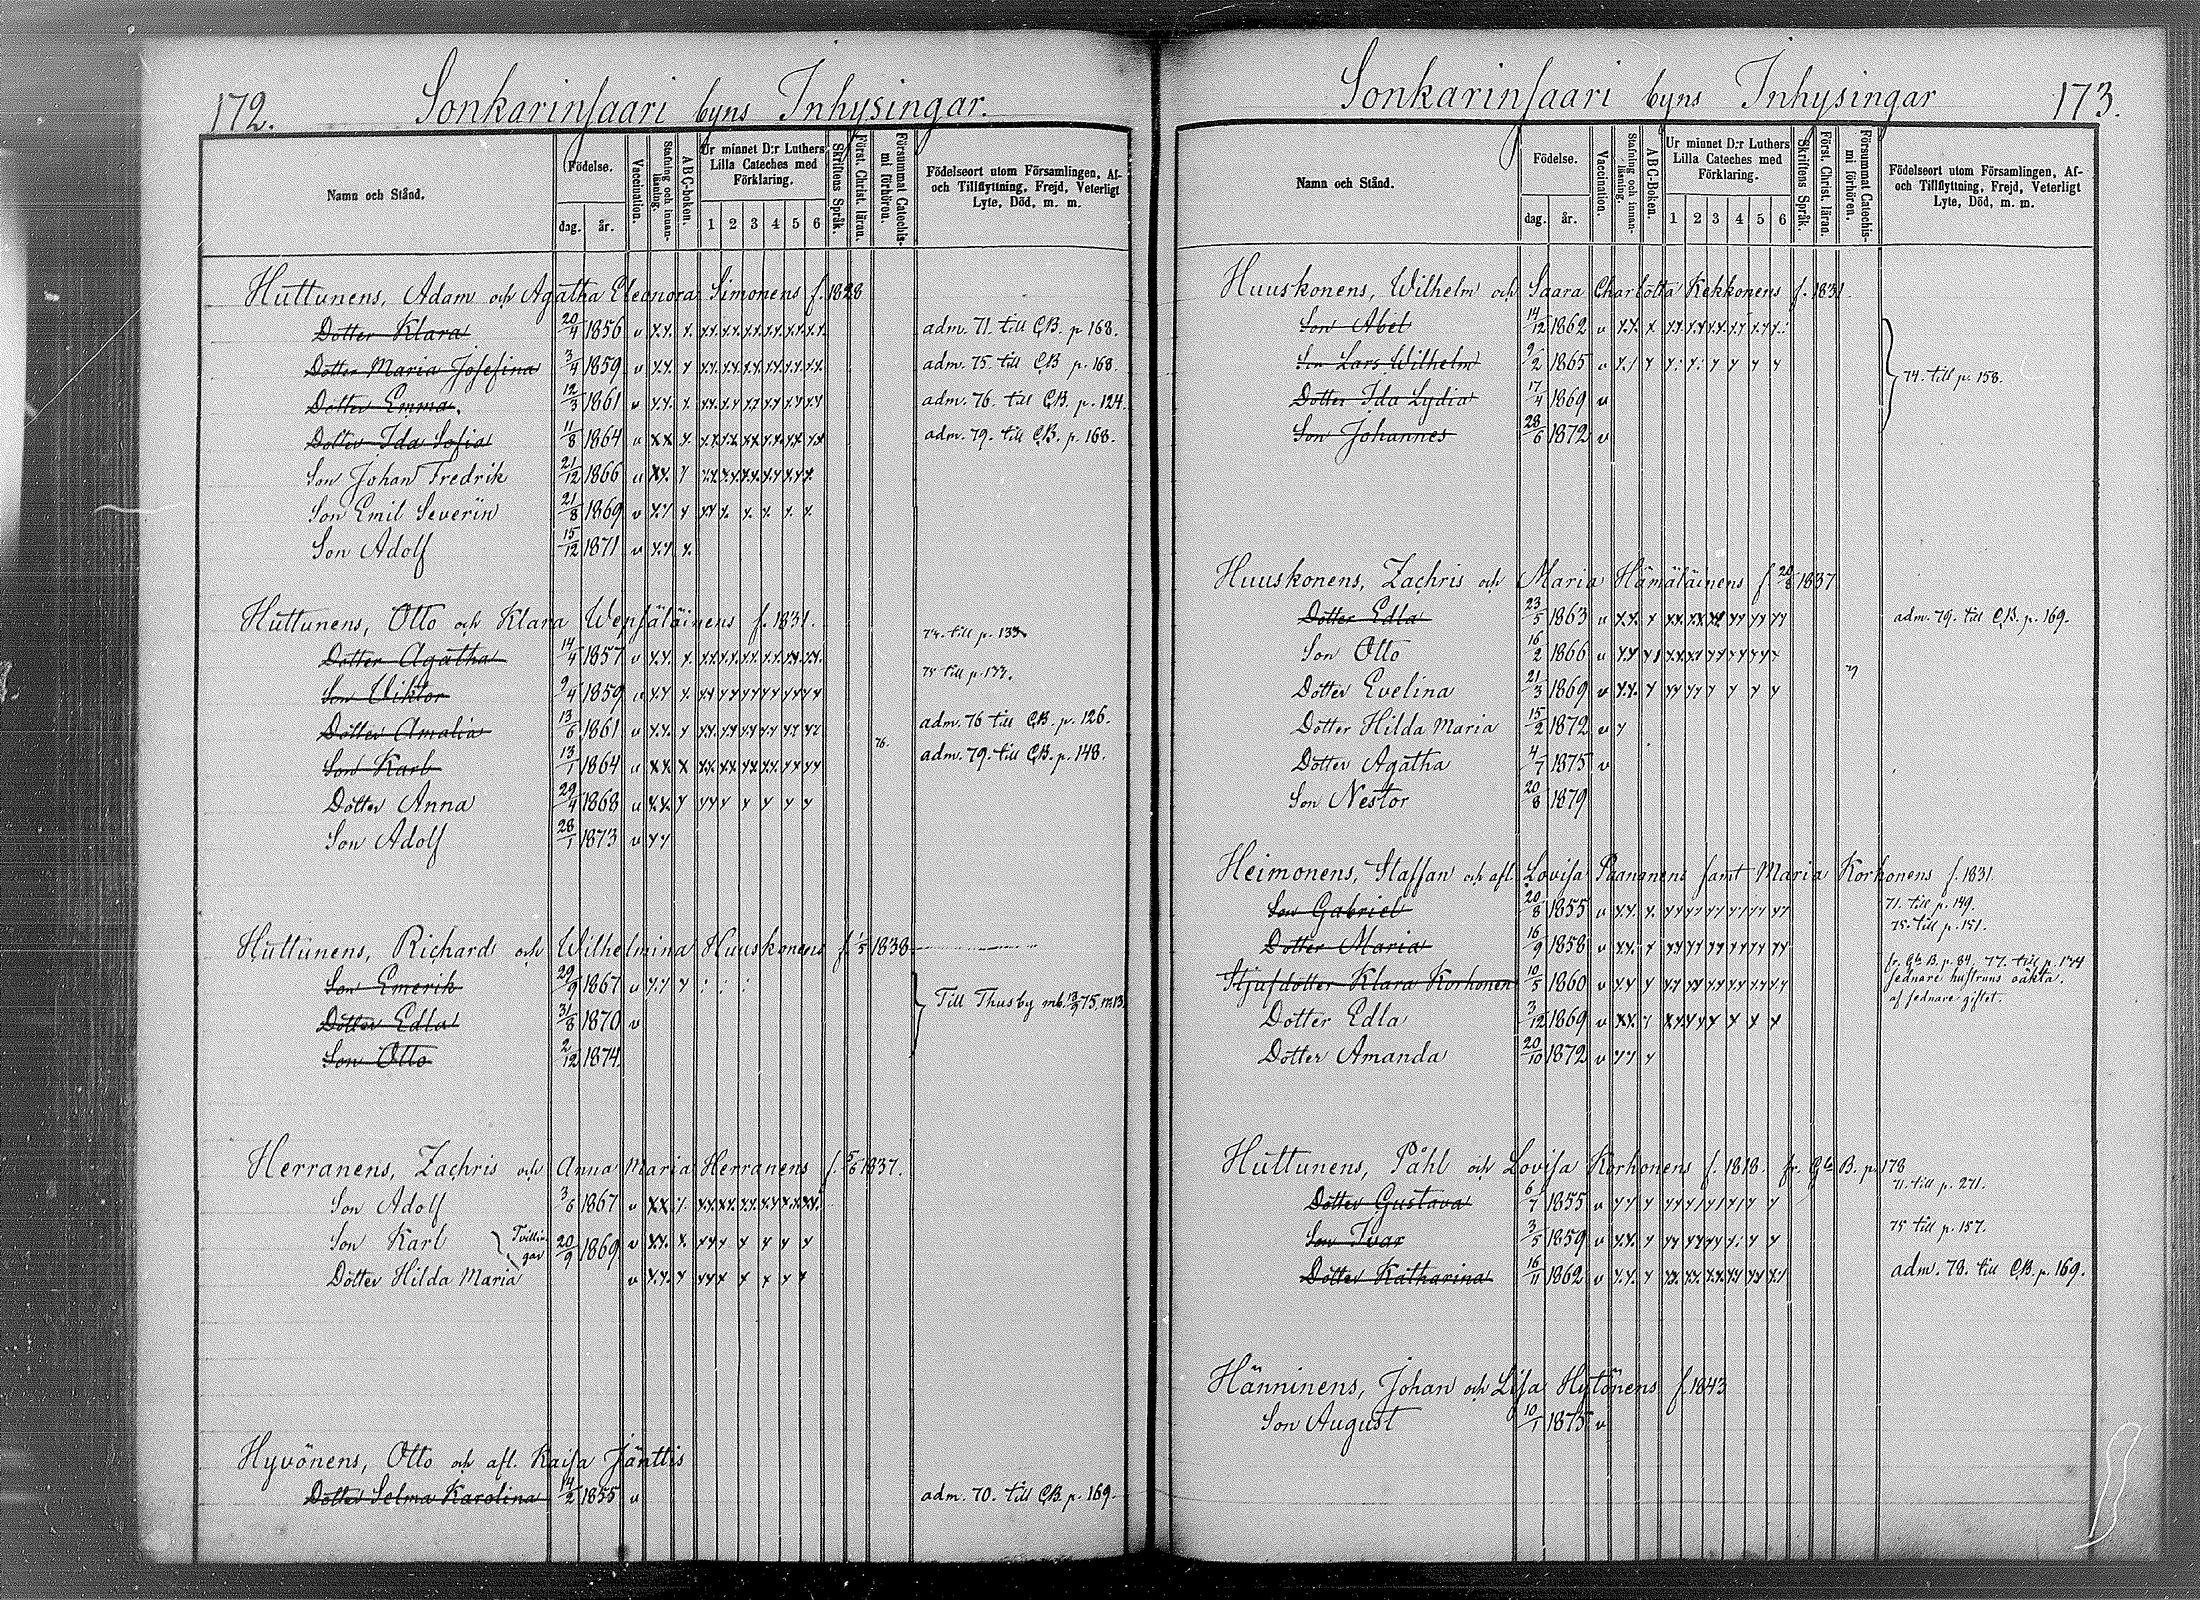 172. Sonkarinsaari byns Inhysingar.
Namn och Stånd.
Födelse.
dag. år.
Vaccination.
Stafning och innanläsning.
ABC-boken.
Ur minnet D:r Luthers Lilla Cateches med Förklaring.
1 2 3 4 5 6
Skriftens Språk.
Först. Christ. läran.
Försummat Catechismi förhören.
Födelseort utom Församlingen, Af- och Tillflyttning, Frejd, Veterligt Lyte, Död, m. m.
Huttunens, Adam och Agatha Eleonora Simonens f. 1828
Dotter Klara 20/4 1856 v adm. 71. till C.B. p. 168.
Dotter Maria Josefina 3/4 1859 v adm. 75. till C.B p. 168.
Dotter Emma. 12/3 1861 v adm. 76. till C.B. p. 124.
Dotter Ida Sofia 11/8 1864 v adm. 79. till C.B. p. 168.
Son Johan Fredrik 21/12 1866 v
Son Emil Severin 21/8 1869 v
Son Adolf 15/12 1871 v
Huttunens, Otto och Klara Wepsäläinens f. 1831.
Dotter Agatha 14/4 1857 v 74. till p. 133.
Son Viktor 9/4 1859 v 75 till p. 177.
Dotter Amalia 13/6 1861 v adm. 76 till C.B. p. 126.
Son Karl 13/1 1864 v 76. adm. 79. till C.B. p. 148.
Dotter Anna 29/4 1868 v
Son Adolf 28/1 1873 v
Huttunens, Richard och Wilhelmina Huuskonens f. 1/5 1838.
Son Emerik 29/9 1867 v
Dotter Edla 31/8 1870 v Till Thusby mb. 13/9 75, n:o 13
Son Otto 2/12 1874.
Herranens, Zachris och Anna Maria Herranens f. 5/6 1837.
Son Adolf 3/6 1867 v
Son Karl Tvillingar 20/9 1869 v
Dotter Hilda Maria v
Hyvönens, Otto och afl. Kaisa Jänttis
Dotter Selma Karolina 14/2 1855 v adm. 70. till C.B. p. 169.
Sonkarinsaari byns Inhysingar 173.
Namn och Stånd.
Födelse.
dag. år.
Vaccination.
Stafning och innanläsning.
ABC-Boken.
Ur minnet D:r Luthers Lilla Cateches med Förklaring.
1 2 3 4 5 6
Skriftens Språk.
Först. Christ. läran.
Försummat Catechismi förhören.
Födelseort utom Församlingen, Af- och Tillflyttning, Frejd, Veterligt Lyte, Död, m. m.
Huuskonens, Wilhelm och Saara Charlotta Kekkonens f. 1831.
Son Abel 14/12 1862 v
Son Lars Wilhelm 9/2 1865 v 74. till p. 158.
Dotter Ida Lydia 17/4 1869 v
Son Johannes 28/6 1872 v
Huuskonens, Zachris och Maria Hämäläinens f. 20/8 1837
Dotter Edla 23/5 1863 v adm. 79. till C.B. p. 169.
Son Otto 16/2 1866 v
Dotter Evelina 21/3 1869 v
Dotter Hilda Maria 15/2 1872 v
Dotter Agatha 4/7 1875 v
Son Nestor 20/8 1879
Heimonens, Staffan och afl. Lovisa Paananens samt Maria Korhonens f. 1831.
Son Gabriel 20/8 1855 v 71. till p. 149.
Dotter Maria 16/9 1858 v 75. till p. 151.
Stjufdotter Klara Korhonen 10/5 1860 v fr. Gla B. p. 84, 77. till p. 144
sednare hustruns oäkta.
af sednare giftet.
Dotter Edla 3/12 1869 v
Dotter Amanda 20/10 1872 v
Huttunens, Påhl och Lovisa Korhonens f. 1818. fr. Gla B. p. 178
Dotter Gustava 6/7 1855 v 71. till p. 271.
Son Ivar 3/5 1859 v 75 till p. 157.
Dotter Katharina 16/11 1862 v adm. 78. till C.B. p. 169.
Hänninens, Johan och Lisa Hytönens f. 1843
Son August 10/1 1875 v